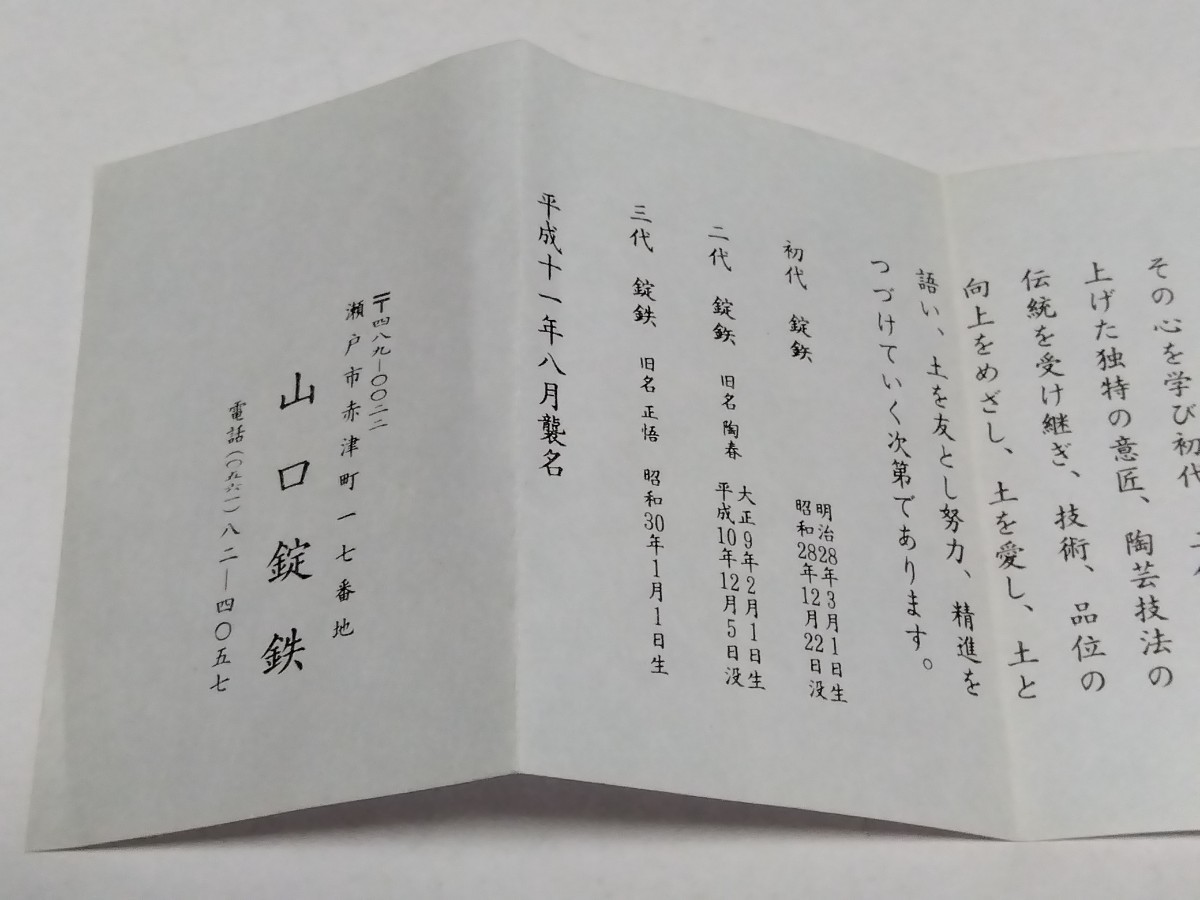 その心を学び初代
上げた独特の意匠、陶芸技法の
伝統を受け継ぎ、技術、品位の
向上をめざし、土を愛し、土と
語い、土を友とし努力、精進を
つづけていく次第であります。
初代 錠鉄 明治28年3月1日生
昭和28年12月22日没
二代 錠鉄 旧名 陶春 大正9年2月1日生
平成10年12月5日没
三代 錠鉄 旧名 正悟 昭和30年1月1日生
平成十一年八月襲名
〒四八九―〇〇二二
瀬戸市赤津町一七番地
山口錠鉄
電話(〇五六一)八二―四〇五七